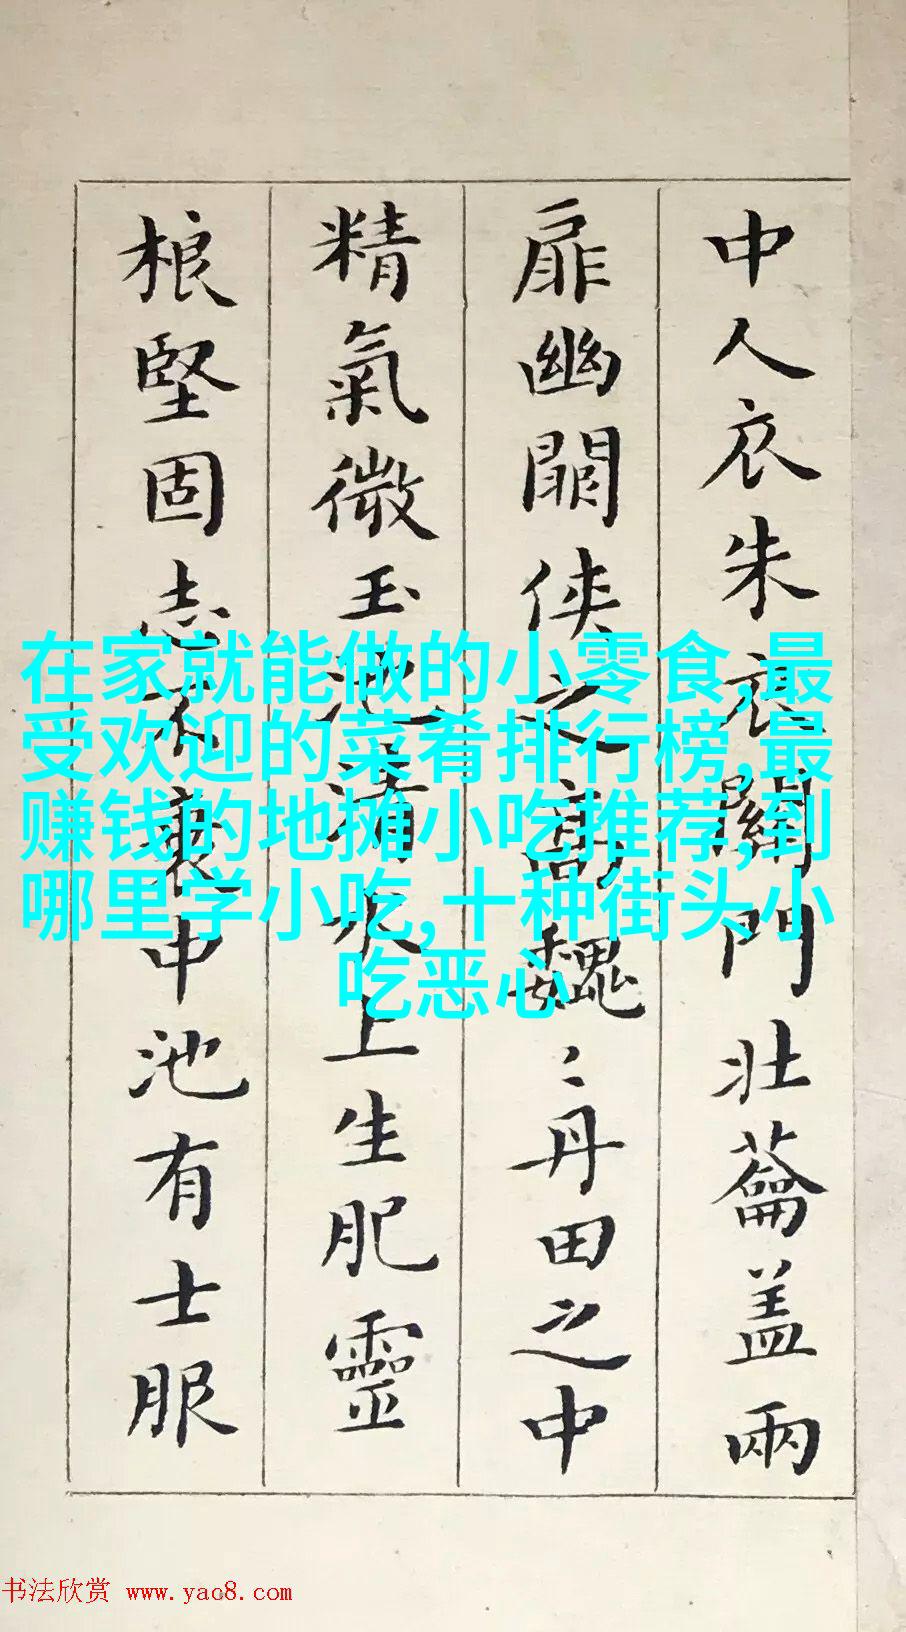 中人衣朱衣關門壯蘥盖兩
扉幽關侠之高魏〻丹田之中
精氣微玉池清水上生肥靈
根堅固志不衰中池有士服
在家就能做的小零食,最
受欢迎的菜肴排行榜,最
赚钱的地摊小吃推荐,到
哪里学小吃,十种街头小
吃恶心
书法欣赏 www.yac8.com